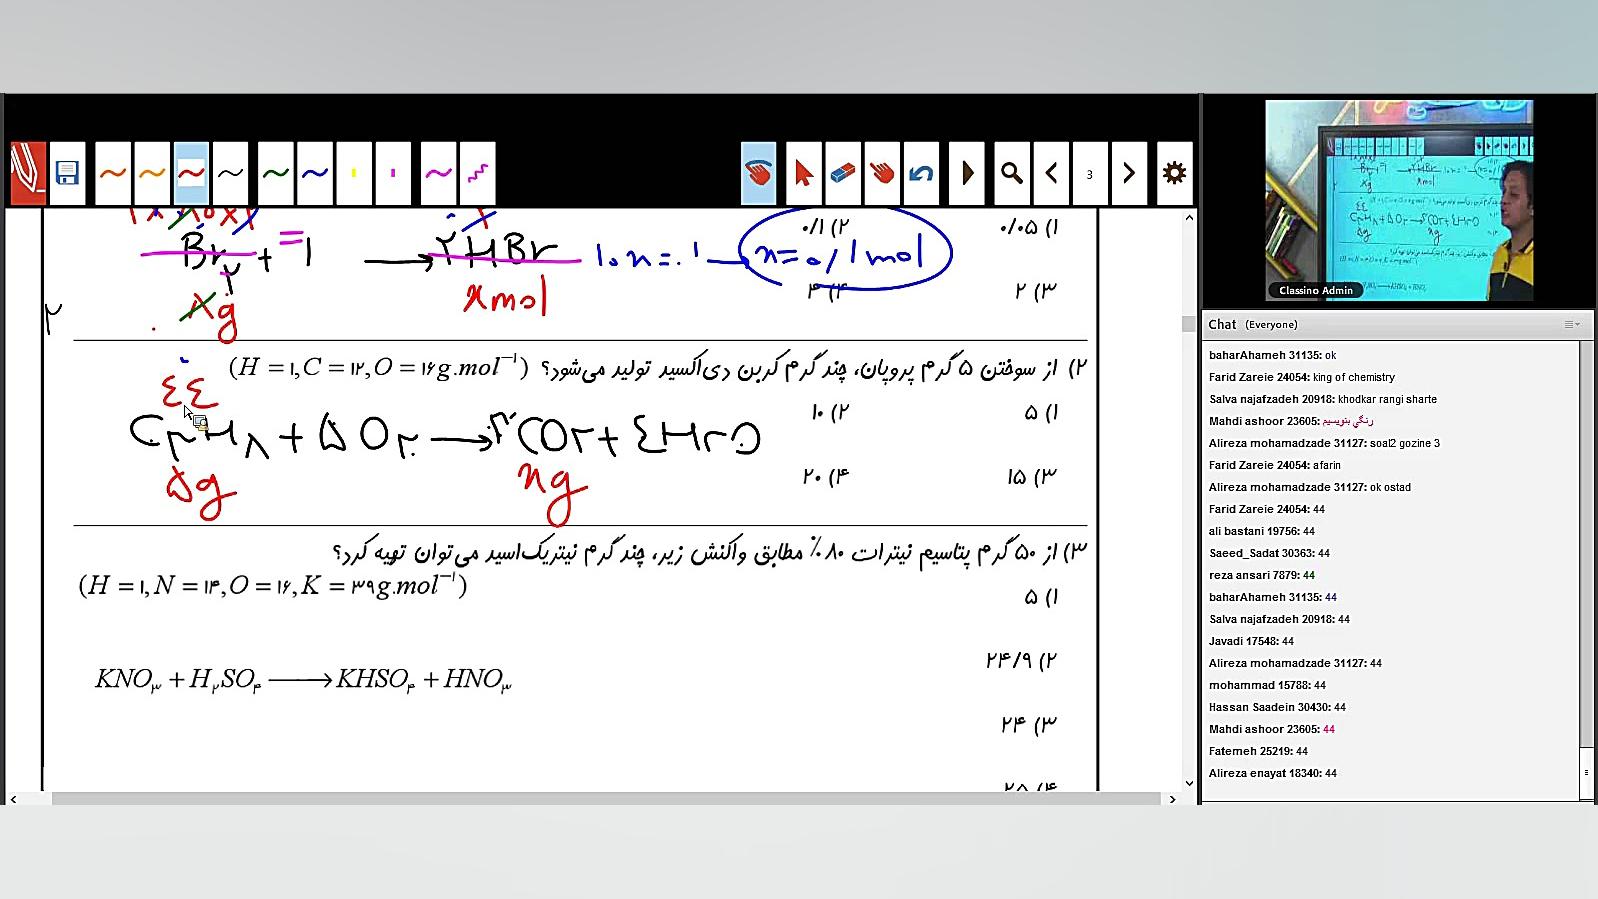 3
Br۲ + ۲HBr
۱۰x=۰۱ → x=۰/۱mol
۱) ۰/۰۵
۲) ۰/۱
xg
xmol
۳) ۲
۴) ۴
۲
۲) از سوختن ۵ گرم پروپان، چند گرم کربن دی‌اکسید تولید می‌شود؟ (H = ۱, C = ۱۲, O = ۱۶ g.mol⁻¹)
٤٤
C۳H۸ + ۵O۲ → ۳CO۲ + ٤H۲O
۵g
xg
۱) ۵
۲) ۱۰
۳) ۱۵
۴) ۲۰
۳) از ۵۰ گرم پتاسیم نیترات ۸۰٪ مطابق واکنش زیر، چند گرم نیتریک‌اسید می‌توان تهیه کرد؟
(H = ۱, N = ۱۴, O = ۱۶, K = ۳۹ g.mol⁻¹)
۱) ۵
۲) ۲۴/۹
KNO۳ + H۲SO۴ → KHSO۴ + HNO۳
۳) ۲۴
۴) ۲۵
Classino Admin
Chat (Everyone)
baharAhameh 31135: ok
Farid Zareie 24054: king of chemistry
Salva najafzadeh 20918: khodkar rangi sharte
Mahdi ashoor 23605: رنگي بنويسيم
Alireza mohamadzade 31127: soal2 gozine 3
Farid Zareie 24054: afarin
Alireza mohamadzade 31127: ok ostad
Farid Zareie 24054: 44
ali bastani 19756: 44
Saeed_Sadat 30363: 44
reza ansari 7879: 44
baharAhameh 31135: 44
Salva najafzadeh 20918: 44
Javadi 17548: 44
Alireza mohamadzade 31127: 44
mohammad 15788: 44
Hassan Saadein 30430: 44
Mahdi ashoor 23605: 44
Fatemeh 25219: 44
Alireza enayat 18340: 44